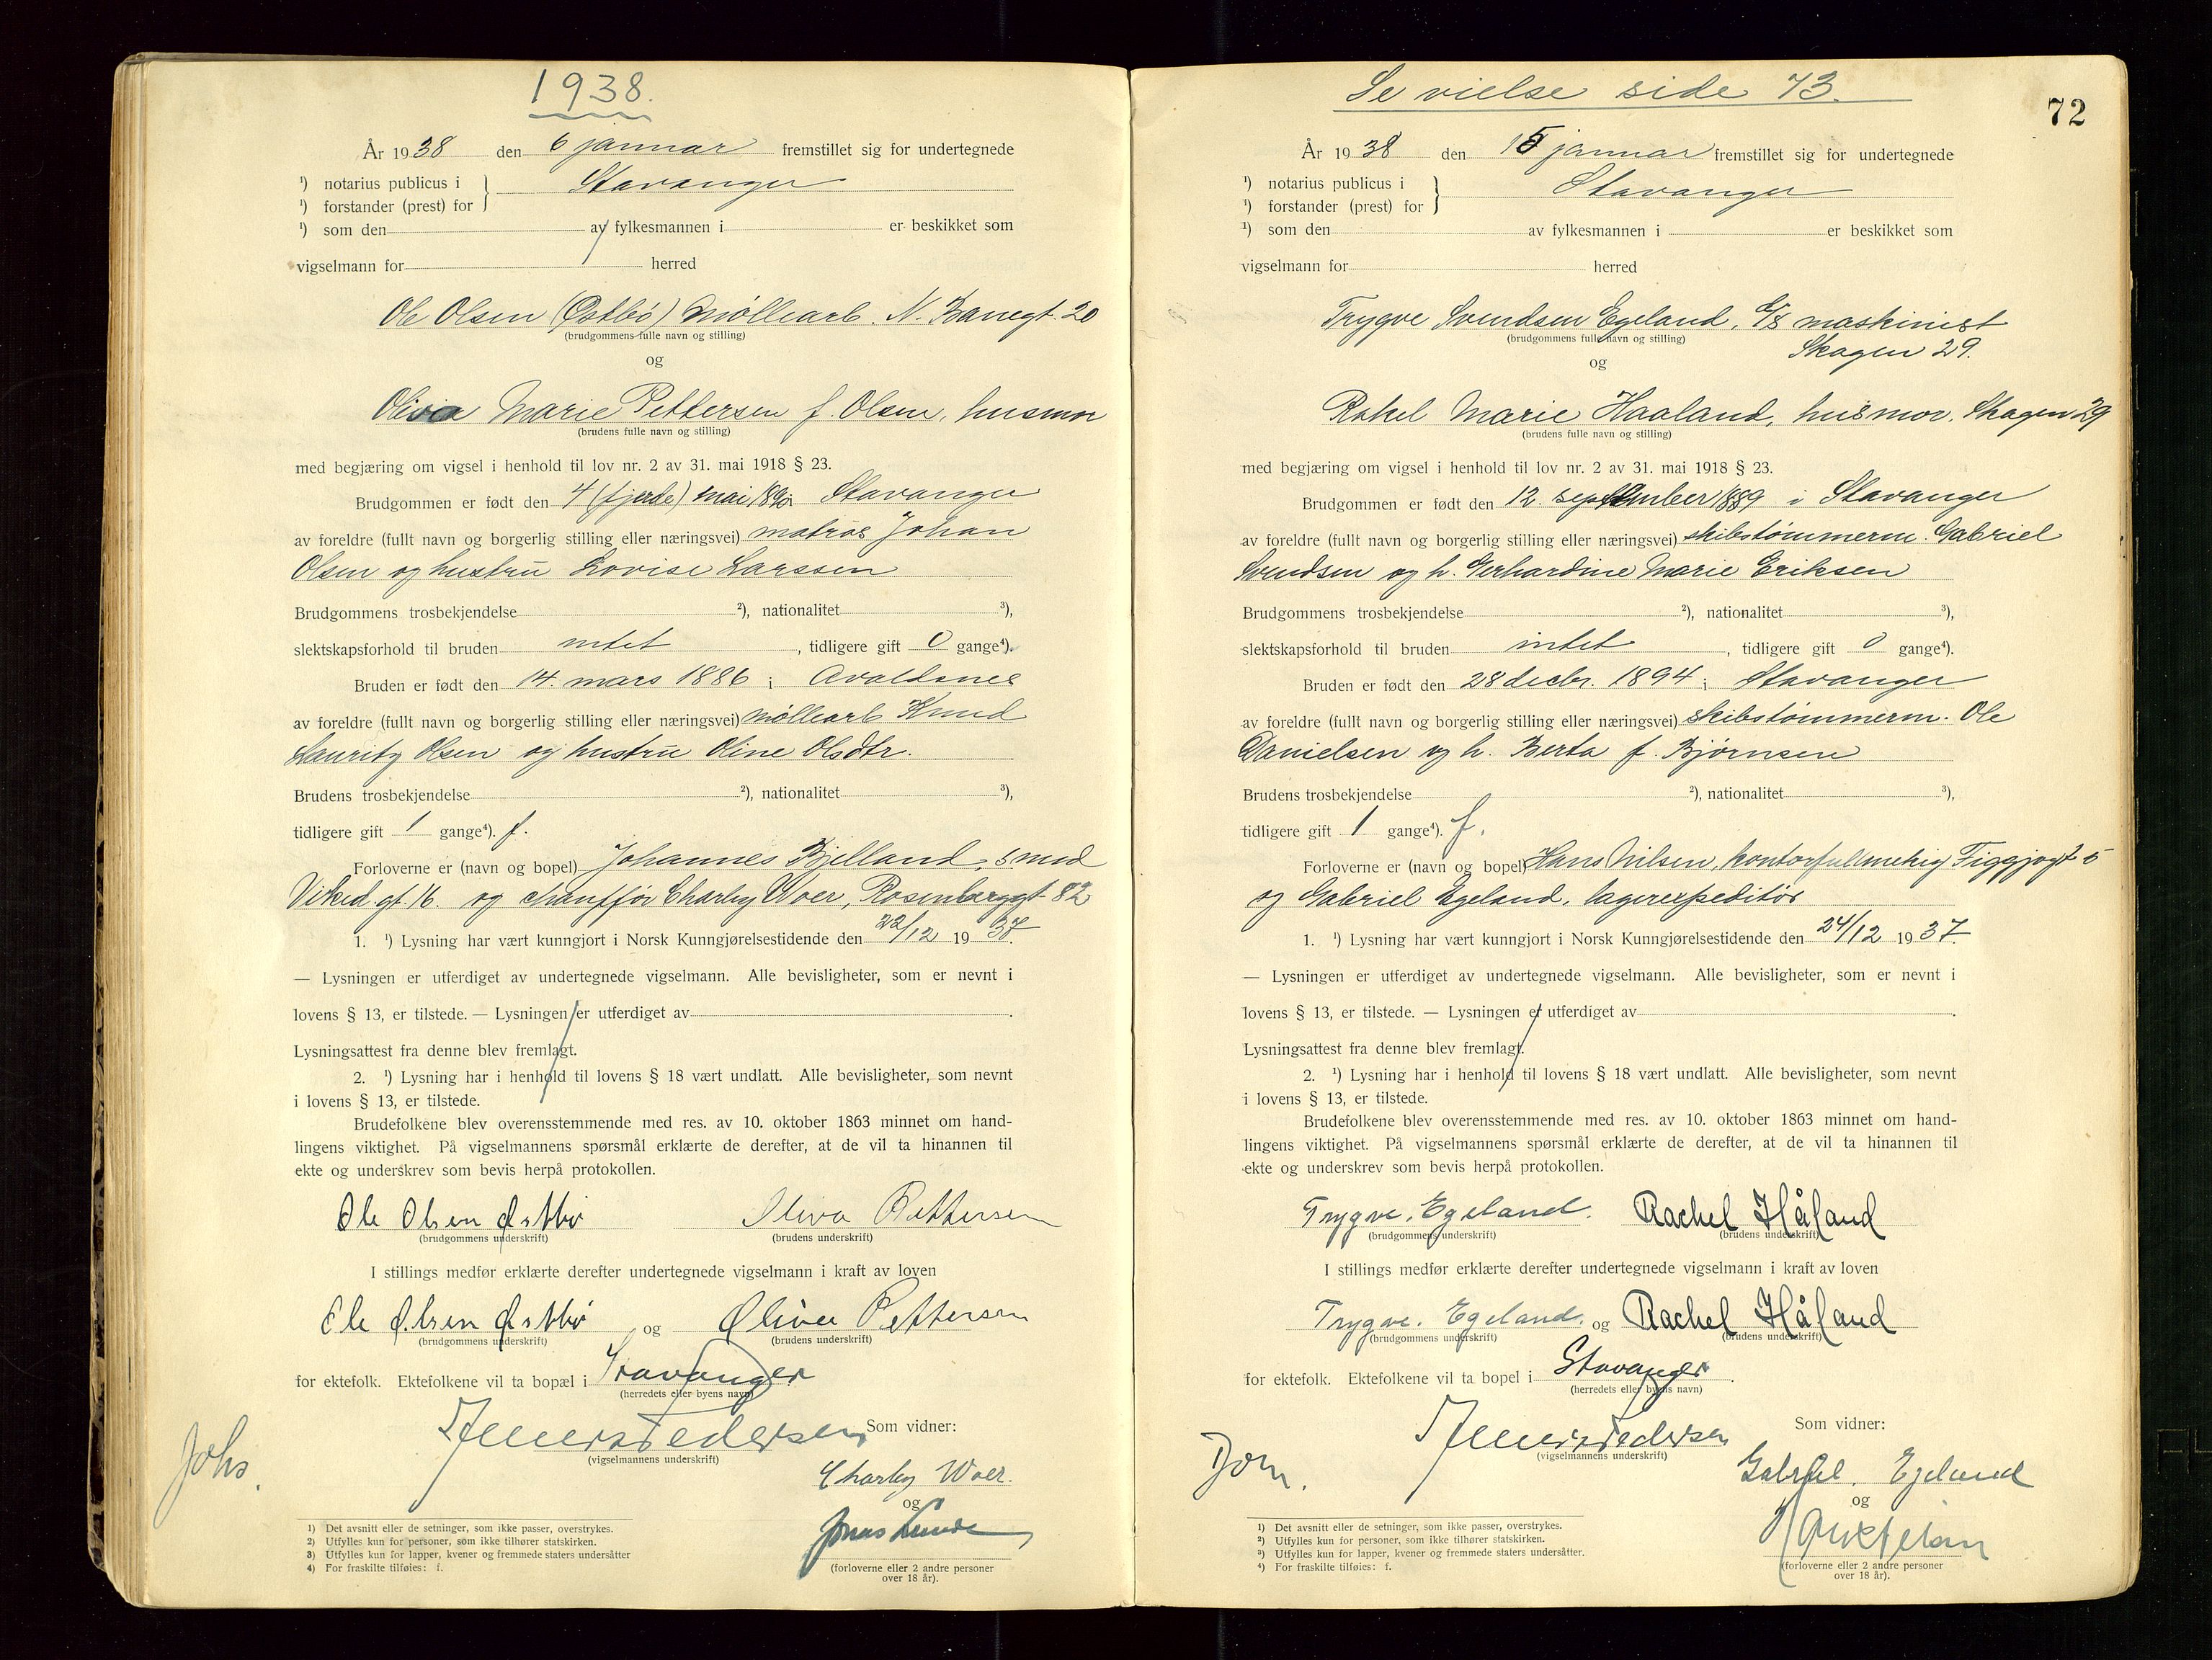 1938.
År 1938 den 6 januar fremstillet sig for undertegnede
¹) notarius publicus i } Stavanger
¹) forstander (prest) for
¹) som den av fylkesmannen i er beskikket som
vigselmann for herred
Ole Olsen (Østbø) Møllearb. N. Banegt. 20
(brudgommens fulle navn og stilling)
og
Oliva Marie Pettersen f. Olsen, husmor
(brudens fulle navn og stilling)
med begjæring om vigsel i henhold til lov nr. 2 av 31. mai 1918 § 23.
Brudgommen er født den 4 (fjerde) mai i Stavanger
av foreldre (fullt navn og borgerlig stilling eller næringsvei) matros Johan
Olsen og hustru Lovise Larssen
Brudgommens trosbekjendelse ²), nationalitet ³),
slektskapsforhold til bruden intet, tidligere gift 0 gange⁴).
Bruden er født den 14. mars 1886 i Avaldsnes
av foreldre (fullt navn og borgerlig stilling eller næringsvei) møllearb Knud
Lauritz Olsen og hustru Oline Olsdtr.
Brudens trosbekjendelse ²), nationalitet ³),
tidligere gift 1 gange⁴). f.
Forloverne er (navn og bopel) Johannes Bjelland, smed
Viked.gt. 16. og chauffør Charley Woer, Rosenberggt 82
1. ¹) Lysning har vært kunngjort i Norsk Kunngjørelsestidende den 22/12 1937.
— Lysningen er utferdiget av undertegnede vigselmann. Alle bevisligheter, som er nevnt i
lovens § 13, er tilstede. — Lysningen er utferdiget av .
Lysningsattest fra denne blev fremlagt.
2. ¹) Lysning har i henhold til lovens § 18 vært undlatt. Alle bevisligheter, som nevnt
i lovens § 13, er tilstede.
Brudefolkene blev overensstemmende med res. av 10. oktober 1863 minnet om hand-
lingens viktighet. På vigselmannens spørsmål erklærte de derefter, at de vil ta hinannen til
ekte og underskrev som bevis herpå protokollen.
Ole Olsen Østbø Oliva Pettersen
(brudgommens underskrift) (brudens underskrift)
I stillings medfør erklærte derefter undertegnede vigselmann i kraft av loven
Ole Olsen Østbø og Oliva Pettersen
(brudgommens underskrift) (brudens underskrift)
for ektefolk. Ektefolkene vil ta bopæl i Stavanger
(herredets eller byens navn)
Som vidner:
(vigselmannens underskrift)
Johs.
Charley Woer.
og
Jonas Lunde
(forloverne eller 2 andre personer
over 18 år).
1) Det avsnitt eller de setninger, som ikke passer, overstrykes.
2) Utfylles kun for personer, som ikke tilhører statskirken.
3) Utfylles kun for lapper, kvener og fremmede staters undersåtter
4) For fraskilte tilføies: f.
Se vielse side 73.
72
År 1938 den 15 januar fremstillet sig for undertegnede
¹) notarius publicus i } Stavanger
¹) forstander (prest) for
¹) som den av fylkesmannen i er beskikket som
vigselmann for herred
Trygve Svendsen Egeland, maskinist
(brudgommens fulle navn og stilling)
Skagen 29.
og
Rakel Marie Haaland, husmor. Skagen 29
(brudens fulle navn og stilling)
med begjæring om vigsel i henhold til lov nr. 2 av 31. mai 1918 § 23.
Brudgommen er født den 12. september 1889 i Stavanger
av foreldre (fullt navn og borgerlig stilling eller næringsvei) skibstømmerm. Gabriel
Svendsen og h. Gerhardine Marie Eriksen
Brudgommens trosbekjendelse ²), nationalitet ³),
slektskapsforhold til bruden intet, tidligere gift 0 gange⁴).
Bruden er født den 28 decbr. 1894 i Stavanger
av foreldre (fullt navn og borgerlig stilling eller næringsvei) skibstømmerm. Ole
Danielsen og h. Berta f. Bjørnsen
Brudens trosbekjendelse ²), nationalitet ³),
tidligere gift 1 gange⁴). f.
Forloverne er (navn og bopel) Hans Nilsen, kontorfullmektig Figgjogt 5
og Gabriel Egeland, lagerexpeditør
1. ¹) Lysning har vært kunngjort i Norsk Kunngjørelsestidende den 24/12 1937.
— Lysningen er utferdiget av undertegnede vigselmann. Alle bevisligheter, som er nevnt i
lovens § 13, er tilstede. — Lysningen er utferdiget av .
Lysningsattest fra denne blev fremlagt.
2. ¹) Lysning har i henhold til lovens § 18 vært undlatt. Alle bevisligheter, som nevnt
i lovens § 13, er tilstede.
Brudefolkene blev overensstemmende med res. av 10. oktober 1863 minnet om hand-
lingens viktighet. På vigselmannens spørsmål erklærte de derefter, at de vil ta hinannen til
ekte og underskrev som bevis herpå protokollen.
Trygve. Egeland. Rachel Håland
(brudgommens underskrift) (brudens underskrift)
I stillings medfør erklærte derefter undertegnede vigselmann i kraft av loven
Trygve. Egeland. og Rachel Håland
(brudgommens underskrift) (brudens underskrift)
for ektefolk. Ektefolkene vil ta bopel i Stavanger.
(herredets eller byens navn)
Som vidner:
(vigselmannens underskrift)
Gabriel. Egeland
og
(forloverne eller 2 andre personer
over 18 år).
¹) Det avsnitt eller de setninger, som ikke passer, overstrykes.
²) Utfylles kun for personer, som ikke tilhører statskirken.
³) Utfylles kun for lapper, kvener og fremmede staters undersåtter.
⁴) For fraskilte tilføies: f.